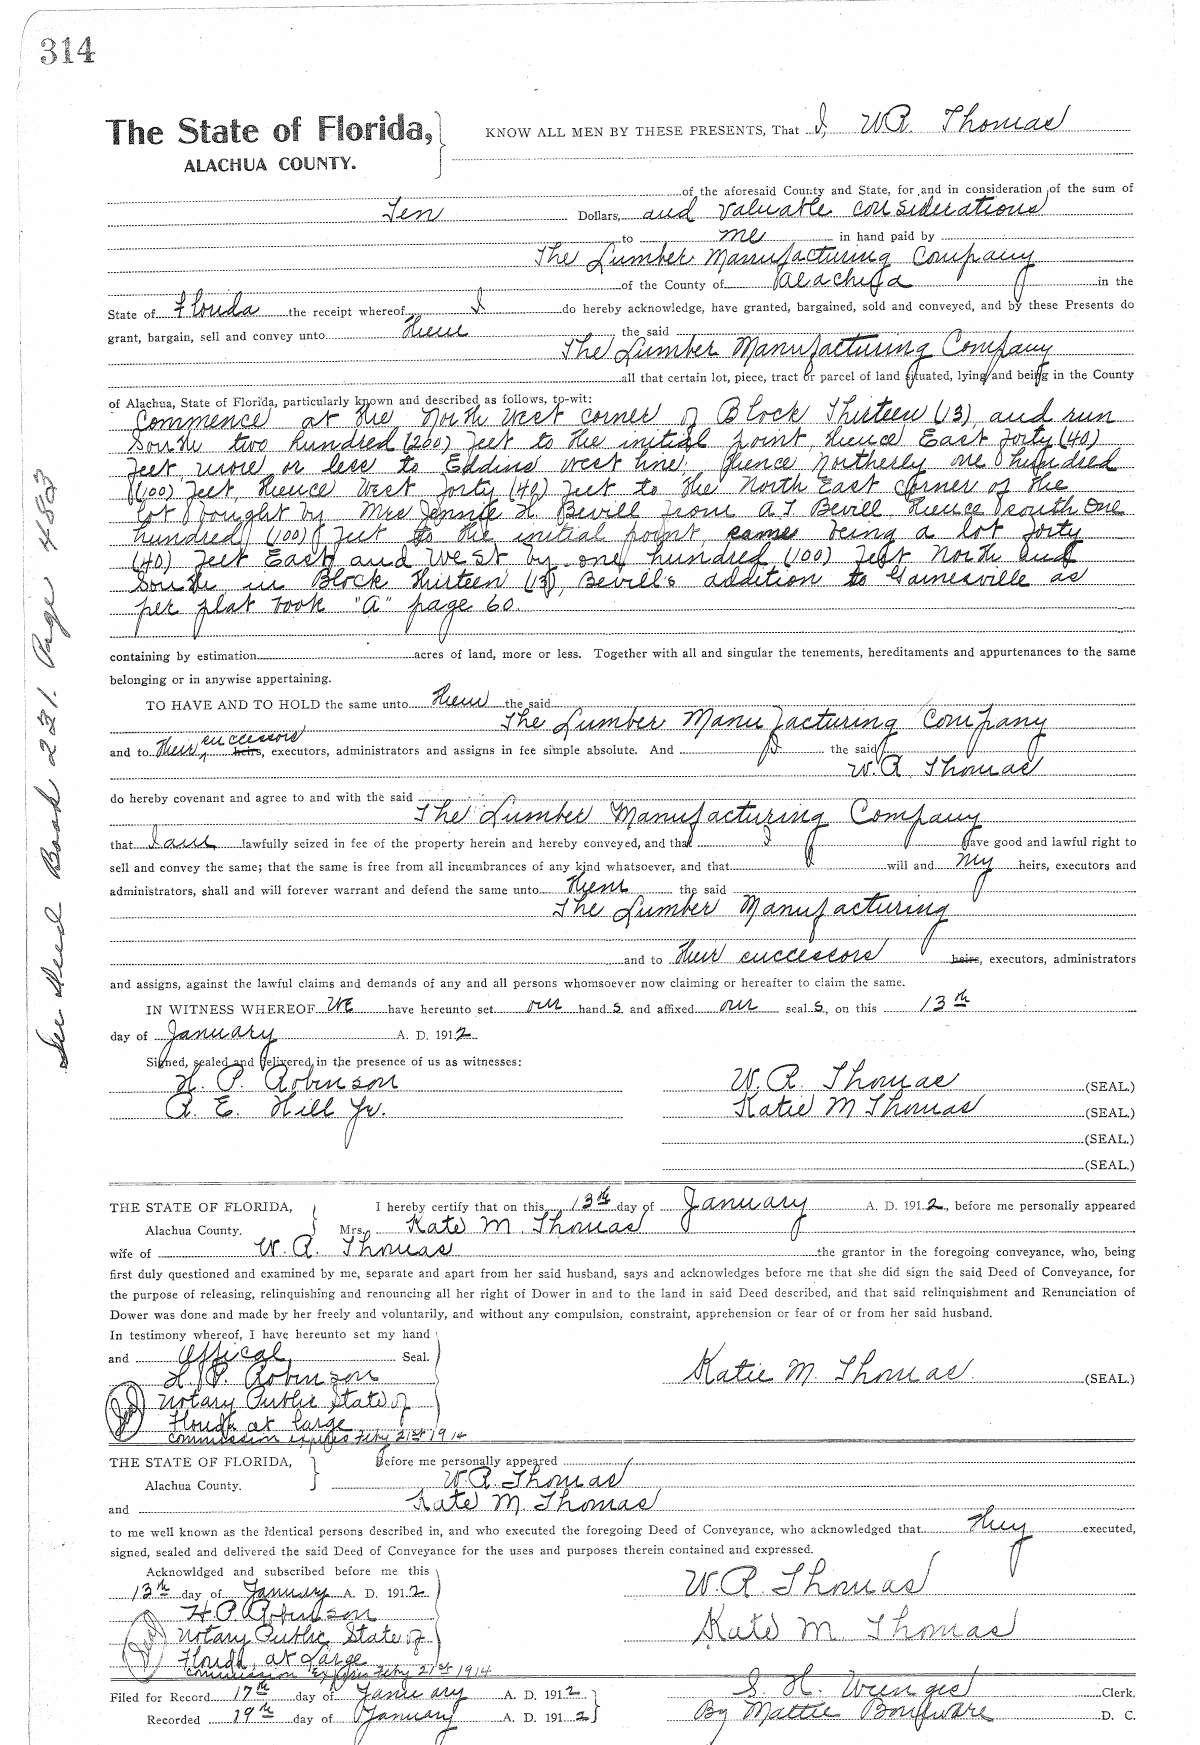 314
The State of Florida, KNOW ALL MEN BY THESE PRESENTS, That I, W.R. Thomas
ALACHUA COUNTY.
of the aforesaid County and State, for and in consideration of the sum of
Ten Dollars, and valuable considerations
to me in hand paid by
The Lumber Manufacturing Company
of the County of Alachua in the
State of Florida the receipt whereof I do hereby acknowledge, have granted, bargained, sold and conveyed, and by these Presents do
grant, bargain, sell and convey unto them the said
The Lumber Manufacturing Company
all that certain lot, piece, tract or parcel of land situated, lying and being in the County
of Alachua, State of Florida, particularly known and described as follows, to-wit:
Commence at the North West corner of Block Thirteen (13), and run
South two hundred (200) feet to the initial point, thence East forty (40)
feet, more or less to Eddins west line, thence Northerly one hundred
(100) feet, thence West forty (40) feet to the North East corner of the
lot bought by Mrs Jennie H. Bevill from A T Bevill, thence south One
hundred (100) feet to the initial point, same being a lot forty
(40) feet East and West by one hundred (100) feet North and
South in Block thirteen (13), Bevill's addition to Gainesville as
per plat book "A" page 60.
containing by estimation acres of land, more or less. Together with all and singular the tenements, hereditaments and appurtenances to the same
belonging or in anywise appertaining.
TO HAVE AND TO HOLD the same unto them the said
The Lumber Manufacturing Company
and to their successors heirs, executors, administrators and assigns in fee simple absolute. And I the said
W.R. Thomas
do hereby covenant and agree to and with the said
The Lumber Manufacturing Company
that I am lawfully seized in fee of the property herein and hereby conveyed, and that I have good and lawful right to
sell and convey the same; that the same is free from all incumbrances of any kind whatsoever, and that I will and my heirs, executors and
administrators, shall and will forever warrant and defend the same unto them the said
The Lumber Manufacturing
and to their successors heirs, executors, administrators
and assigns, against the lawful claims and demands of any and all persons whomsoever now claiming or hereafter to claim the same.
IN WITNESS WHEREOF We have hereunto set our hand s and affixed our seal s, on this 13th
day of January A. D. 1912.
Signed, sealed and delivered in the presence of us as witnesses:
H. P. Robinson W. R. Thomas (SEAL.)
R. E. Hill Jr. Katie M Thomas (SEAL.)
(SEAL.)
(SEAL.)
THE STATE OF FLORIDA, I hereby certify that on this 13th day of January A. D. 1912, before me personally appeared
Alachua County. Mrs. Kate M. Thomas
wife of W. R. Thomas the grantor in the foregoing conveyance, who, being
first duly questioned and examined by me, separate and apart from her said husband, says and acknowledges before me that she did sign the said Deed of Conveyance, for
the purpose of releasing, relinquishing and renouncing all her right of Dower in and to the land in said Deed described, and that said relinquishment and Renunciation of
Dower was done and made by her freely and voluntarily, and without any compulsion, constraint, apprehension or fear of or from her said husband.
In testimony whereof, I have hereunto set my hand
and Offical Seal.
H. P. Robinson Katie M. Thomas (SEAL.)
Notary Public State of
Florida at large
commission expires Feby 21st 1914
THE STATE OF FLORIDA, Before me personally appeared
Alachua County. W.R. Thomas
and Kate M Thomas
to me well known as the identical persons described in, and who executed the foregoing Deed of Conveyance, who acknowledged that they executed,
signed, sealed and delivered the said Deed of Conveyance for the uses and purposes therein contained and expressed.
Acknowldged and subscribed before me this
13th day of January A. D. 1912 W. R Thomas
H. P. Robinson
Notary Public, State of Kate M. Thomas
Florida, at Large
commission Expires Feby 21st 1914
Filed for Record 17th day of January A. D. 1912 S. H. Wienges Clerk.
Recorded 19th day of January A. D. 1912 By Mattie Boulware D. C.
See Deed Book 221. Page 483